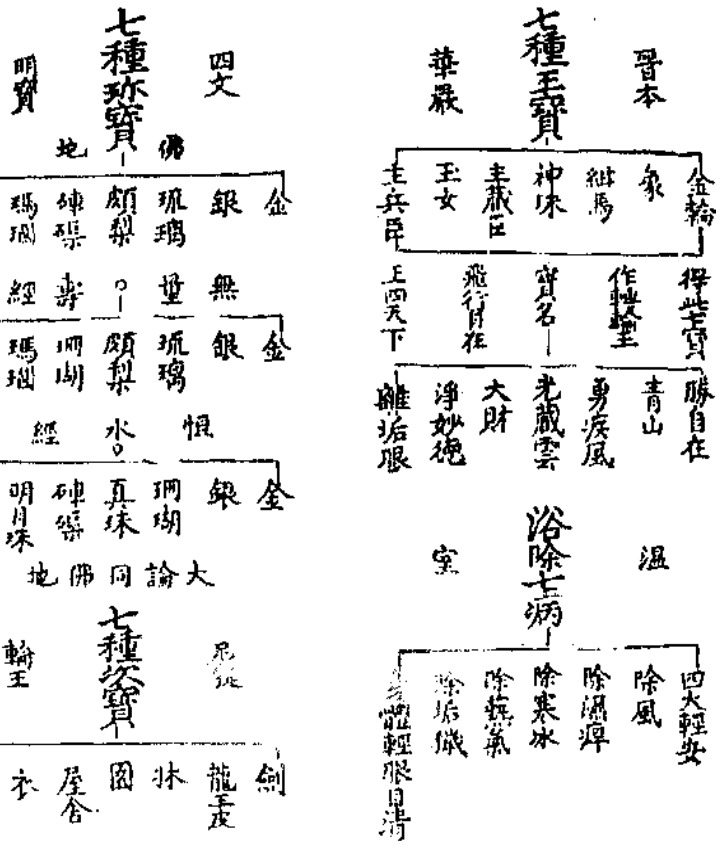 晉本
七種王寶
華嚴
金輪
象
紺馬
神珠
主藏臣
玉女
主兵臣
得此七寶
作轉輪王
寶名
飛行自在
王四天下
勝自在
青山
勇疾風
光藏雲
大財
淨妙德
離垢眼
溫
浴除七病
室
四大輕安
除風
除濕痺
除寒冰
除熱氣
除垢穢
體輕眼目清
四文
七種珍寶
明寶
佛地
金
銀
琉璃
頗梨
硨磲
瑪瑙
無量壽經
金
銀
琉璃
頗梨
珊瑚
瑪瑙
恒水經
金
銀
珊瑚
真珠
硨磲
明月珠
大論同佛地
七種次寶
輪王
劍
龍王皮
牀
園
屋舍
衣